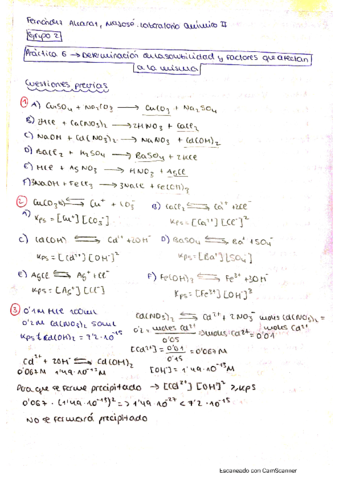 Fernández Álvarez, Nazaret. Laboratorio Químico II
Grupo 2
Práctica 6 → Determinación de la solubilidad y factores que afectan
a la misma
Cuestiones previas
① A) CuSO₄ + Na₂CO₃ → CuCO₃ + Na₂SO₄
B) 2HCl + Ca(NO₃)₂ → 2HNO₃ + CaCl₂
C) NaOH + Cd(NO₃)₂ → NaNO₃ + Cd(OH)₂
D) BaCl₂ + H₂SO₄ → BaSO₄ + 2HCl
E) HCl + AgNO₃ → HNO₃ + AgCl
F) 3NaOH + FeCl₃ → 3NaCl + Fe(OH)₃
② A) CuCO₃ ⇌ Cu⁺ + CO₃⁻ B) CaCl₂ ⇌ Ca⁺ + 2Cl⁻
Kps = [Cu⁺][CO₃⁻] Kps = [Ca⁺][Cl⁻]²
C) Cd(OH)₂ ⇌ Cd²⁺ + 2OH⁻ D) BaSO₄ ⇌ Ba⁺ + SO₄⁻
Kps = [Cd²⁺][OH⁻]² Kps = [Ba⁺][SO₄⁻]
E) AgCl ⇌ Ag⁺ + Cl⁻ F) Fe(OH)₃ ⇌ Fe³⁺ + 3OH⁻
Kps = [Ag⁺][Cl⁻] Kps = [Fe³⁺][OH⁻]³
③ 0'1M HCl 100ml
0'2M Cd(NO₃)₂ 50ml
Kps Cd(OH)₂ = 7'2·10⁻¹⁵
Cd(NO₃)₂ ⇌ Cd²⁺ + 2NO₃⁻ moles Cd(NO₃)₂ = moles Cd²⁺
0'2 = moles Cd²⁺ / 0'05 → moles Cd²⁺ = 0'01
[Cd²⁺] = 0'01 / 0'15 = 0'067M
Cd²⁺ + 2OH⁻ ⇌ Cd(OH)₂
0'067M 1'49·10⁻¹³M [OH⁻] = 1'49·10⁻¹³M
Para que se forme precipitado → [Cd²⁺][OH⁻]² ≥ Kps
0'067 · (1'49·10⁻¹³)² => 1'49·10⁻²⁷ < 7'2·10⁻¹⁵
No se formará precipitado
Escaneado con CamScanner